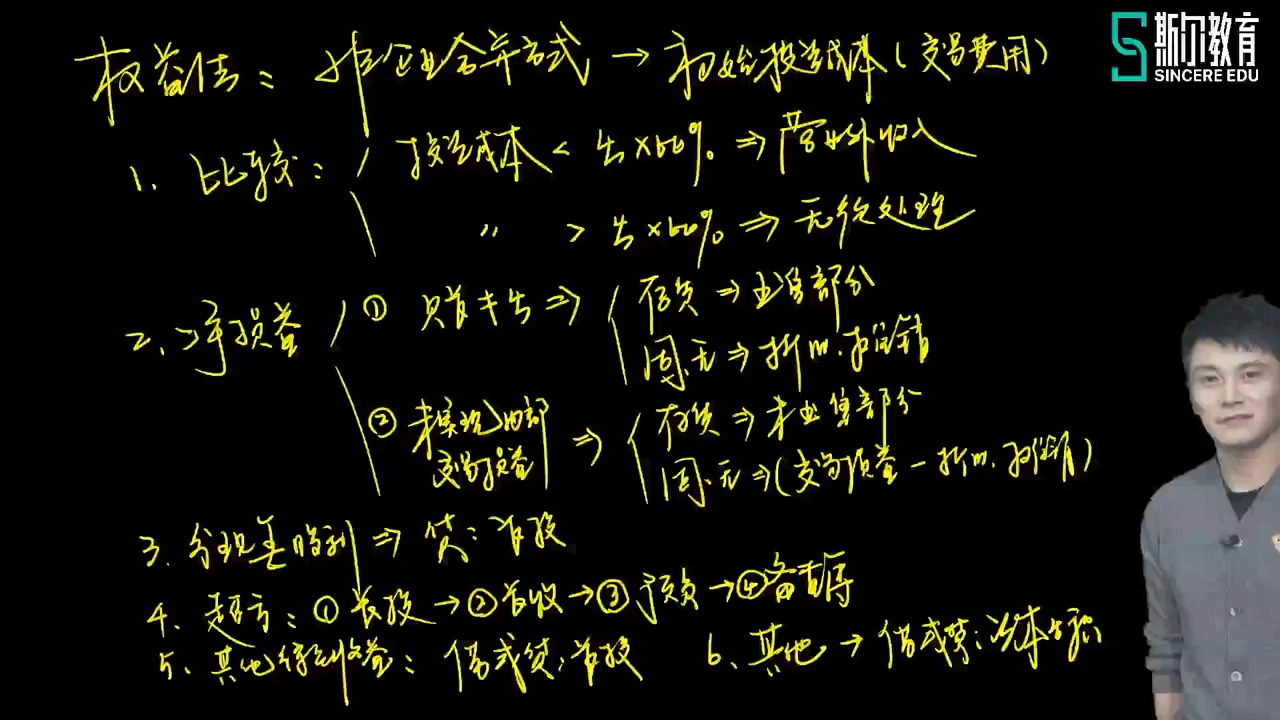 斯尔教育
SINCERE EDU
权益法：非企业合并方式 → 初始投资成本（交易费用）
1. 比较： 投资成本 < 公×60% ⇒ 营业外收入
〃 > 公×60% ⇒ 无须处理
2. 净损益 ① ⇒ 存货 ⇒ 出售部分
固.无 ⇒ 折旧.摊销
② 未实现内部交易损益 ⇒ 存货 ⇒ 未出售部分
固.无 ⇒（交易损益 - 折旧.摊销）
3. 分现金股利 ⇒ 贷：长投
4. 超亏：① 长投 → ② 长收 → ③ 预负 → ④ 备查簿
5. 其他综合收益：借或贷：长投
6. 其他 → 借或贷：资本公积